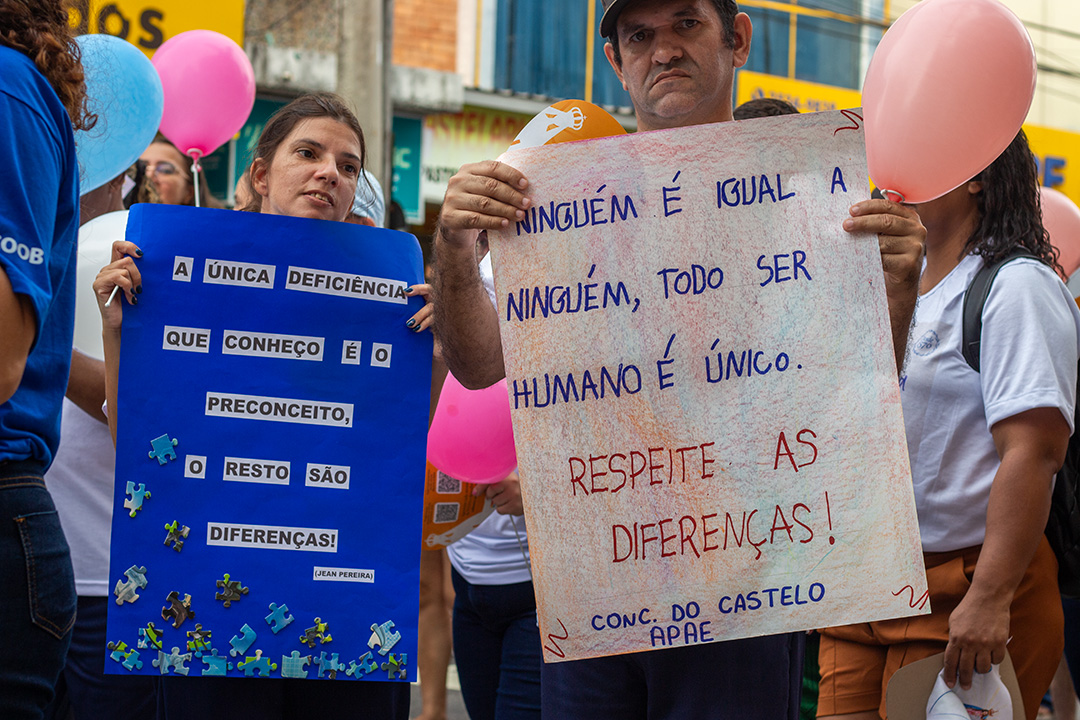 dos
OOB
A ÚNICA DEFICIÊNCIA
QUE CONHEÇO É O
PRECONCEITO,
O RESTO SÃO
DIFERENÇAS!
(JEAN PEREIRA)
NINGUÉM É IGUAL A
NINGUÉM, TODO SER
HUMANO É ÚNICO.
RESPEITE AS
DIFERENÇAS!
CONC. DO CASTELO
APAE